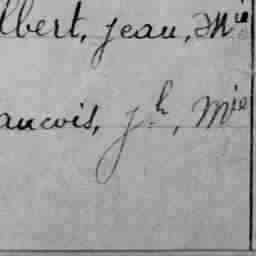 lbert, jean, Mie
ancois, jh, Mie